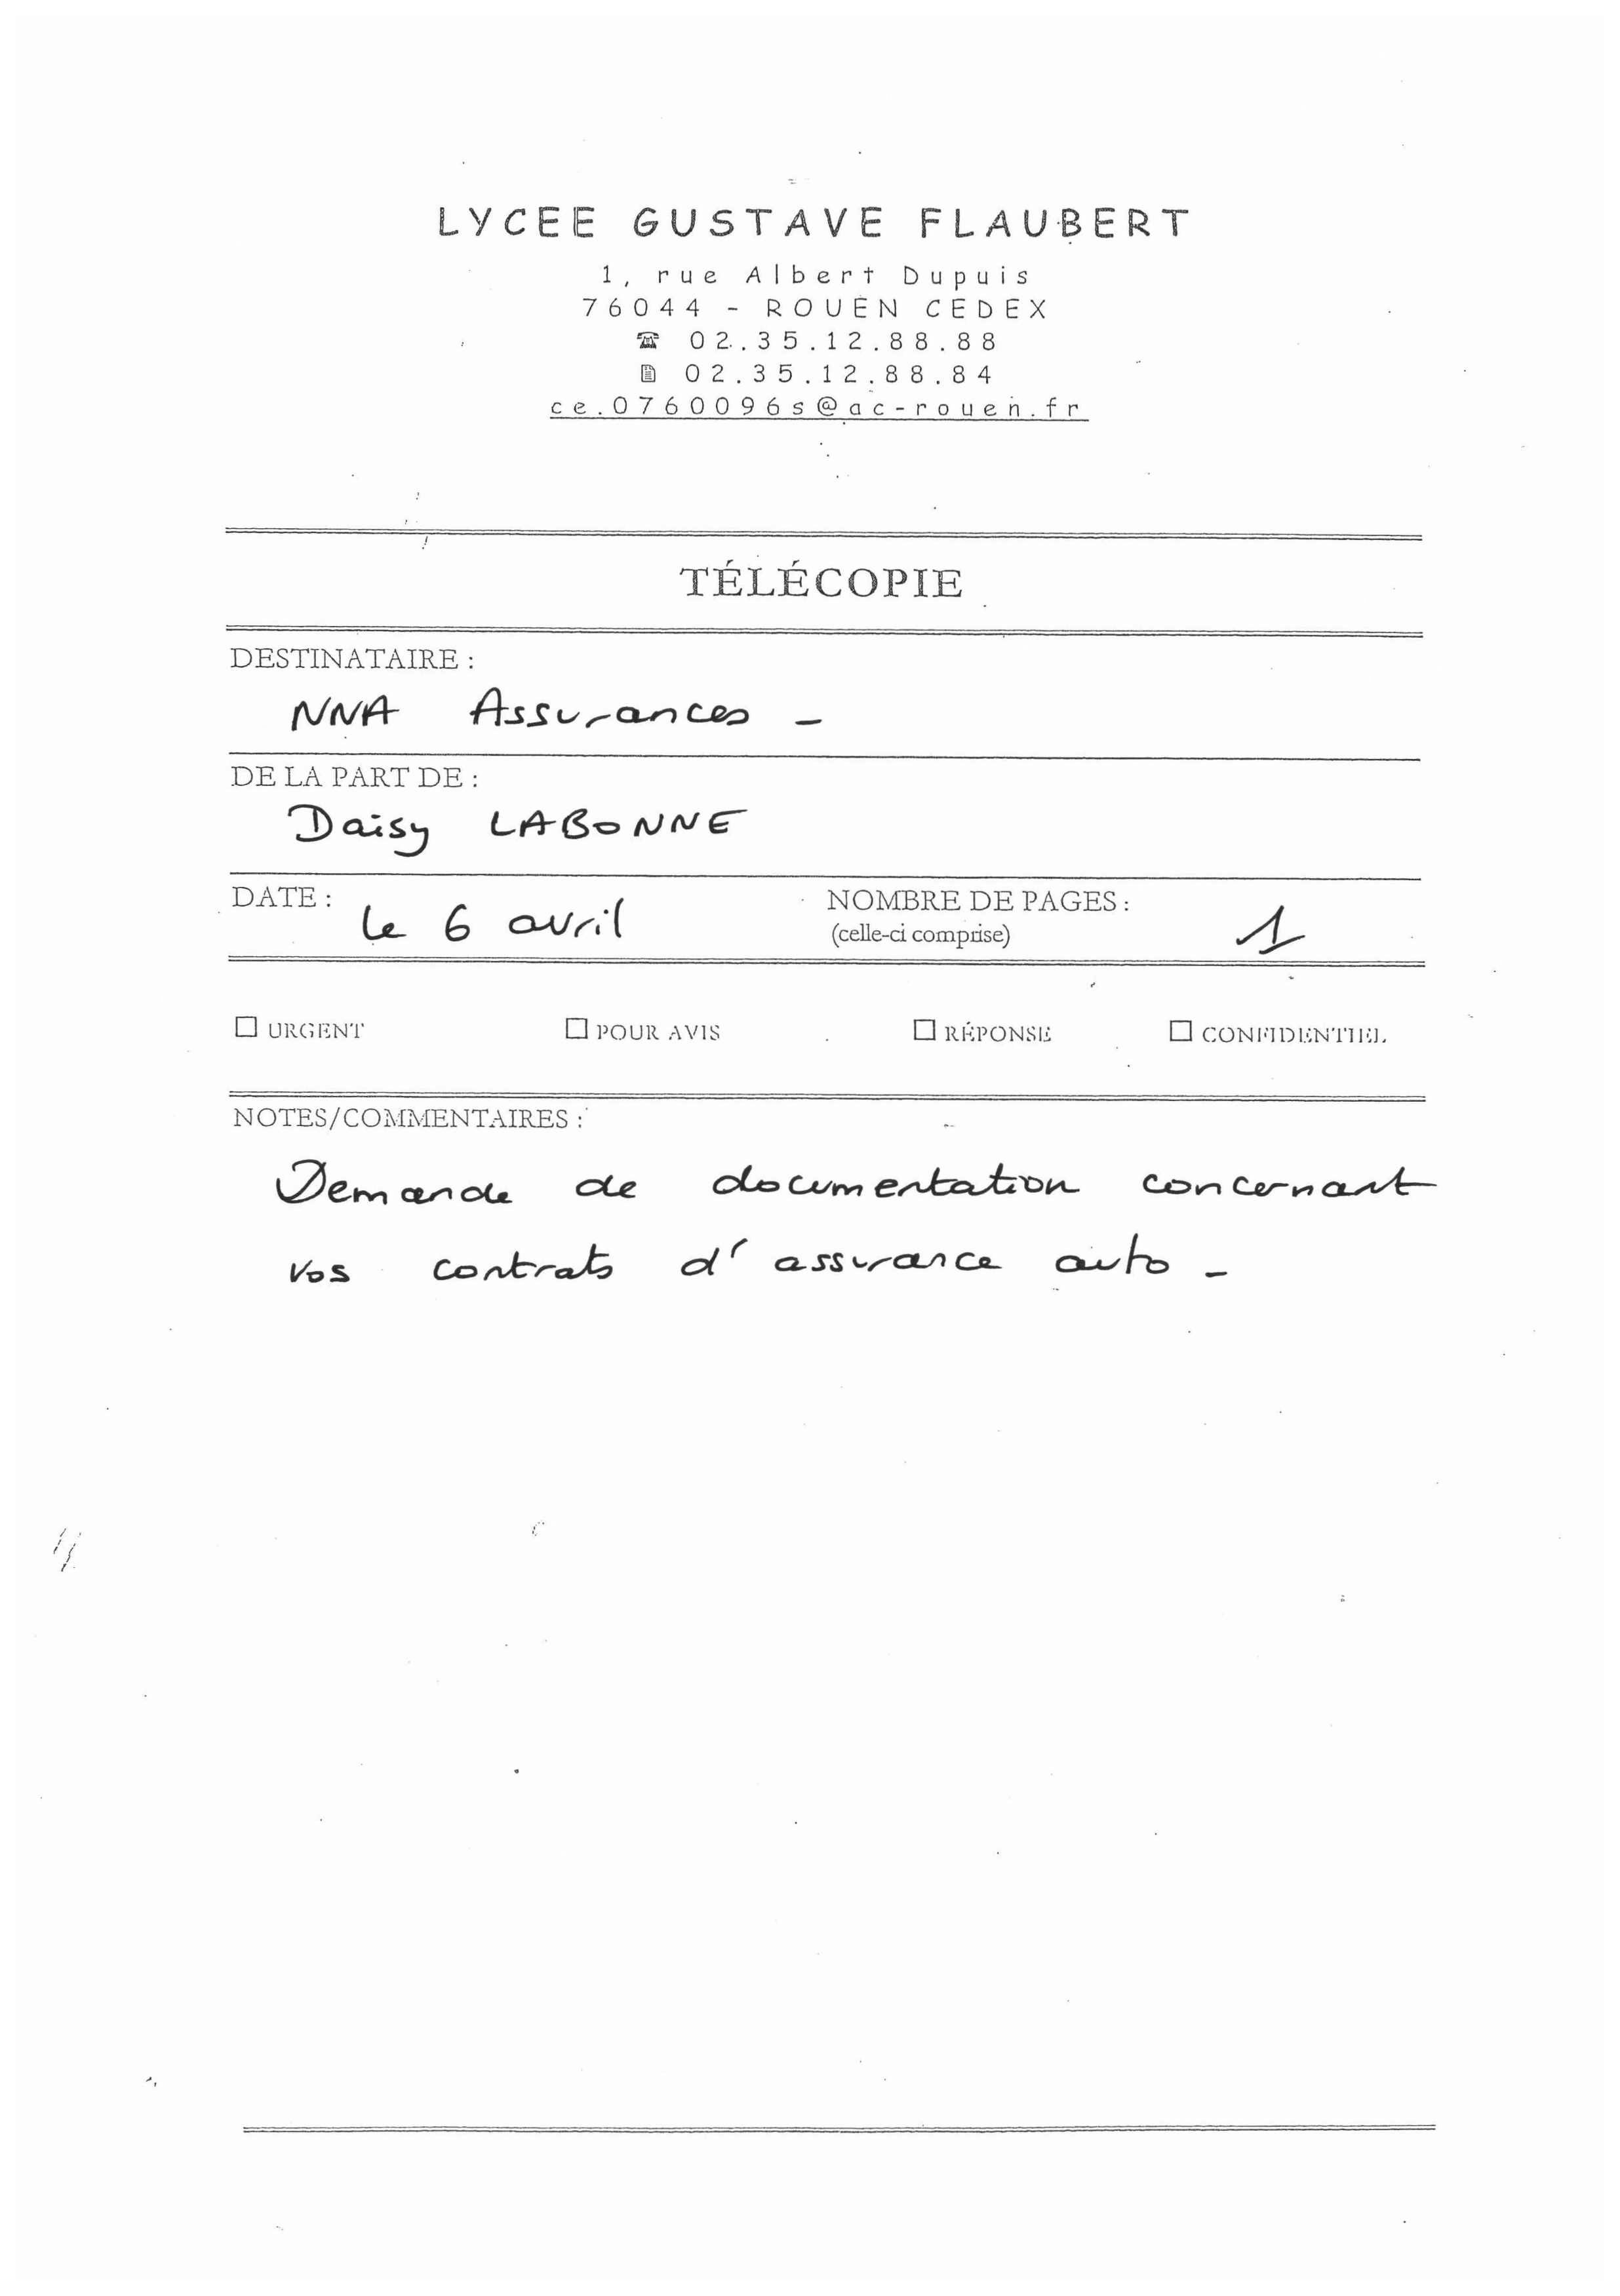 LYCEE GUSTAVE FLAUBERT
1, rue Albert Dupuis
76044 - ROUEN CEDEX
☎ 02.35.12.88.88
🗎 02.35.12.88.84
ce.0760096s@ac-rouen.fr
TÉLÉCOPIE
DESTINATAIRE :
NNA Assurances -
DE LA PART DE :
Daisy LABONNE
DATE : le 6 avril NOMBRE DE PAGES : 1
(celle-ci comprise)
☐ URGENT ☐ POUR AVIS ☐ RÉPONSE ☐ CONFIDENTIEL
NOTES/COMMENTAIRES :
Demande de documentation concernant
vos contrats d'assurance auto -